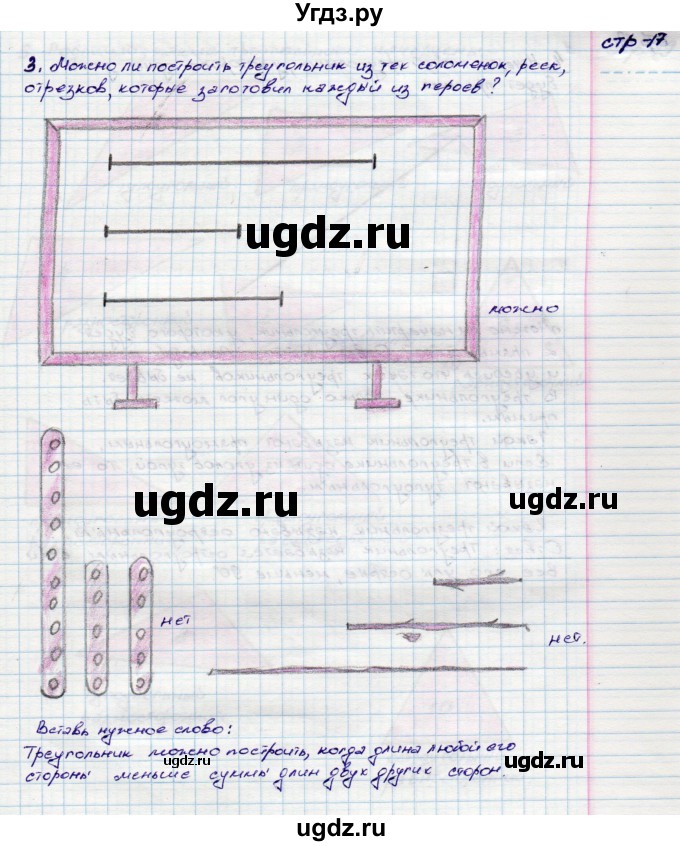 Угдз.ру
стр-17
3. Можно ли построить треугольник из тех соломенок, реек,
отрезков, которые заготовил каждый из героев?
ugdz.ru
можно
ugdz.ru
ugdz.ru
нет
нет.
Вставь нужное слово:
Треугольник можно построить, когда длина любой его
стороны меньше суммы длин двух других сторон.
ugdz.ru
ugdz.ru